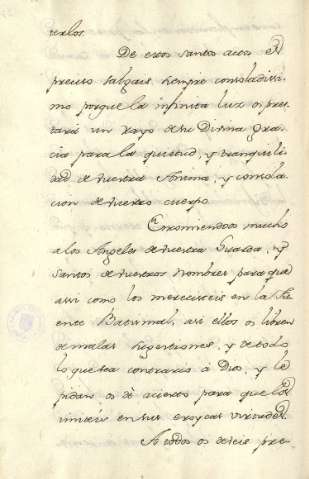 verlos.
De estos santos actos es
preciso salgais siempre consoladisi-
mo porque la infinita luz os pres-
tará un rayo de su Divina gra-
cia para la quietud, y tranquili-
dad de vuestra Anima, y consola-
cion de vuestro cuerpo.
Encomiendoos mucho
a los Angeles de vuestra Guarda, y
Santos de vuestros nombres para que
assi como los merecisteis en la Fu-
ente Bautismal, asi ellos os libren
de malas sugestiones, y de todo
lo que sea contrario á Dios, y le
pidan os dé acierto para que los
imiteis en sus virtudes.
A todos os deceis pre-